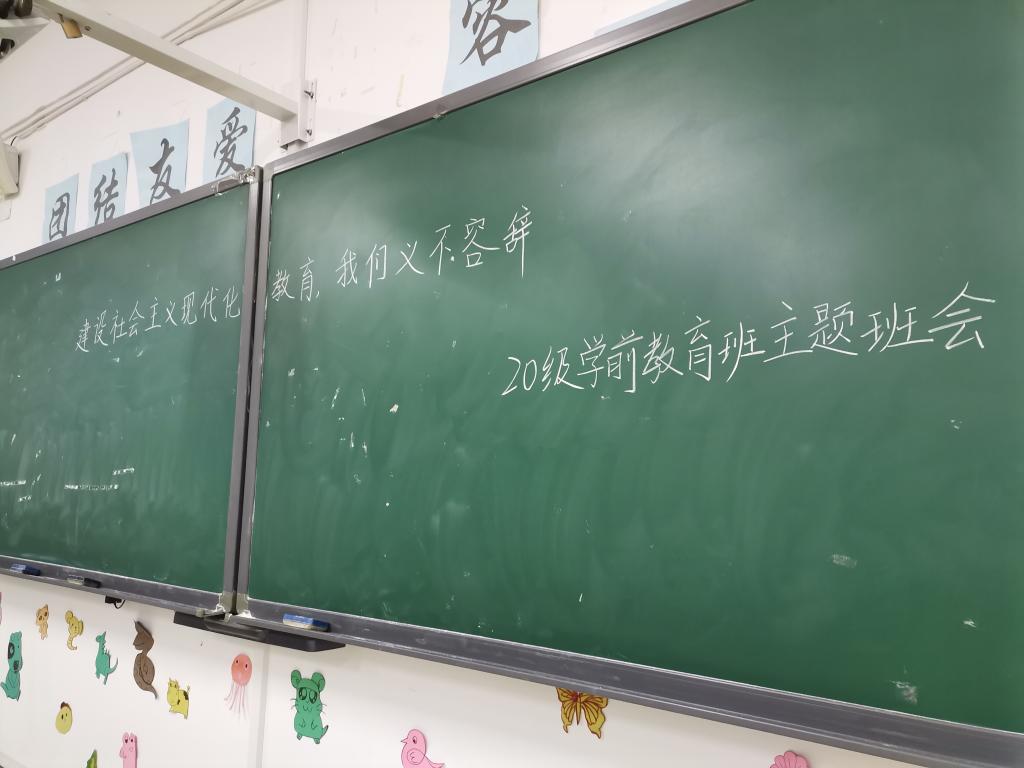 团结友爱
容
建设社会主义现代化教育,我们义不容辞
20级学前教育班主题班会